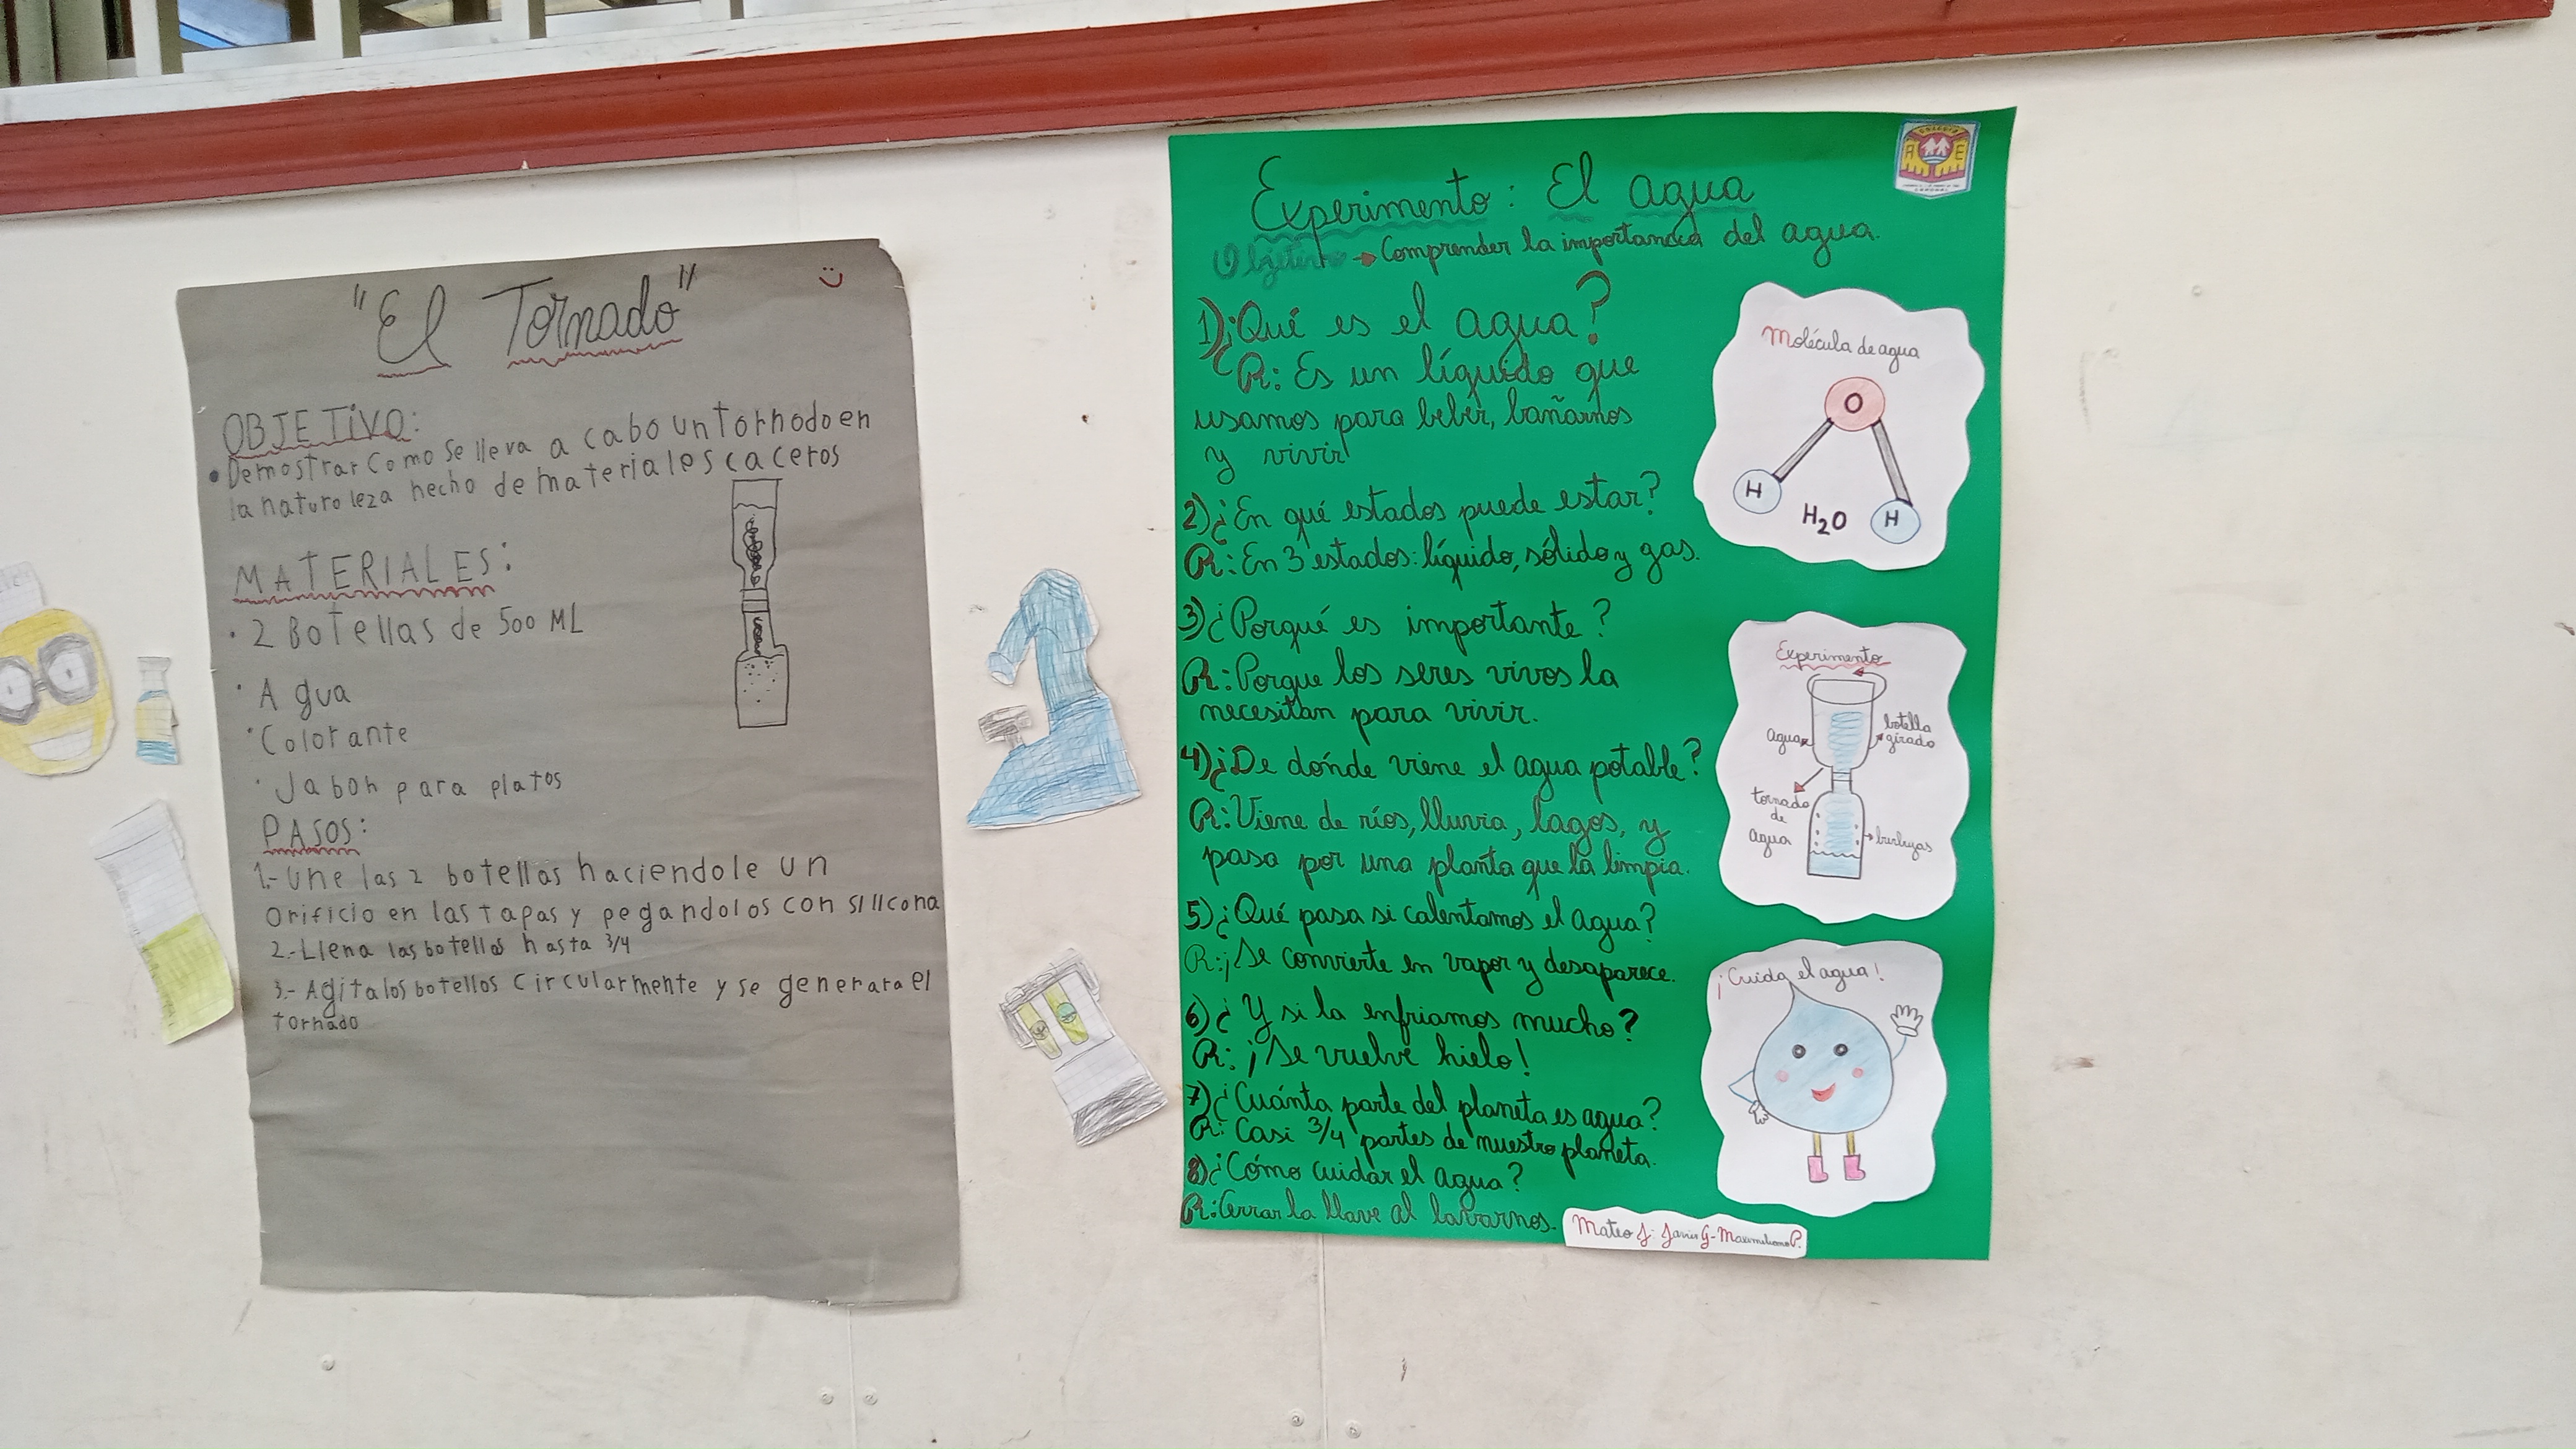 "El Tornado"
OBJETIVO:
• Demostrar Como se lleva a cabo un tornodo en
la naturoleza hecho de materiales caceros
MATERIALES:
· 2 Botellas de 500 ML
· Agua
· Colorante
· Jabon para platos
PASOS:
1.- Une las 2 botellas haciendole un
Orificio en las tapas y pegandolos con silicona
2.- Llena las botellas hasta 3/4
3.- Agita los botellos Circularmente y se generara el
tornado
Experimento: El agua
Objetivo → Comprender la importancia del agua.
1) ¿Qué es el agua?
R: Es un líquido que
usamos para beber, bañarnos
y vivir
2) ¿En qué estados puede estar?
R: En 3 estados: líquido, sólido y gas.
3) ¿Porqué es importante?
R: Porque los seres vivos la
necesitan para vivir.
4) ¿De dónde viene el agua potable?
R: Viene de ríos, lluvia, lagos, y
pasa por una planta que la limpia.
5) ¿Qué pasa si calentamos el agua?
R: ¡Se convierte en vapor y desaparece.
6) ¿Y si la enfriamos mucho?
R: ¡Se vuelve hielo!
7) ¿Cuánta parte del planeta es agua?
R: Casi 3/4 partes de nuestro planeta.
8) ¿Cómo cuidar el agua?
R: Cerrar la llave al lavarnos.
Molécula de agua
O
H
H
H2O
Experimento
agua
botella
girado
tornado
de
agua
burbujas
¡Cuida el agua!
Mateo J. Javier G - Maximiliano P.